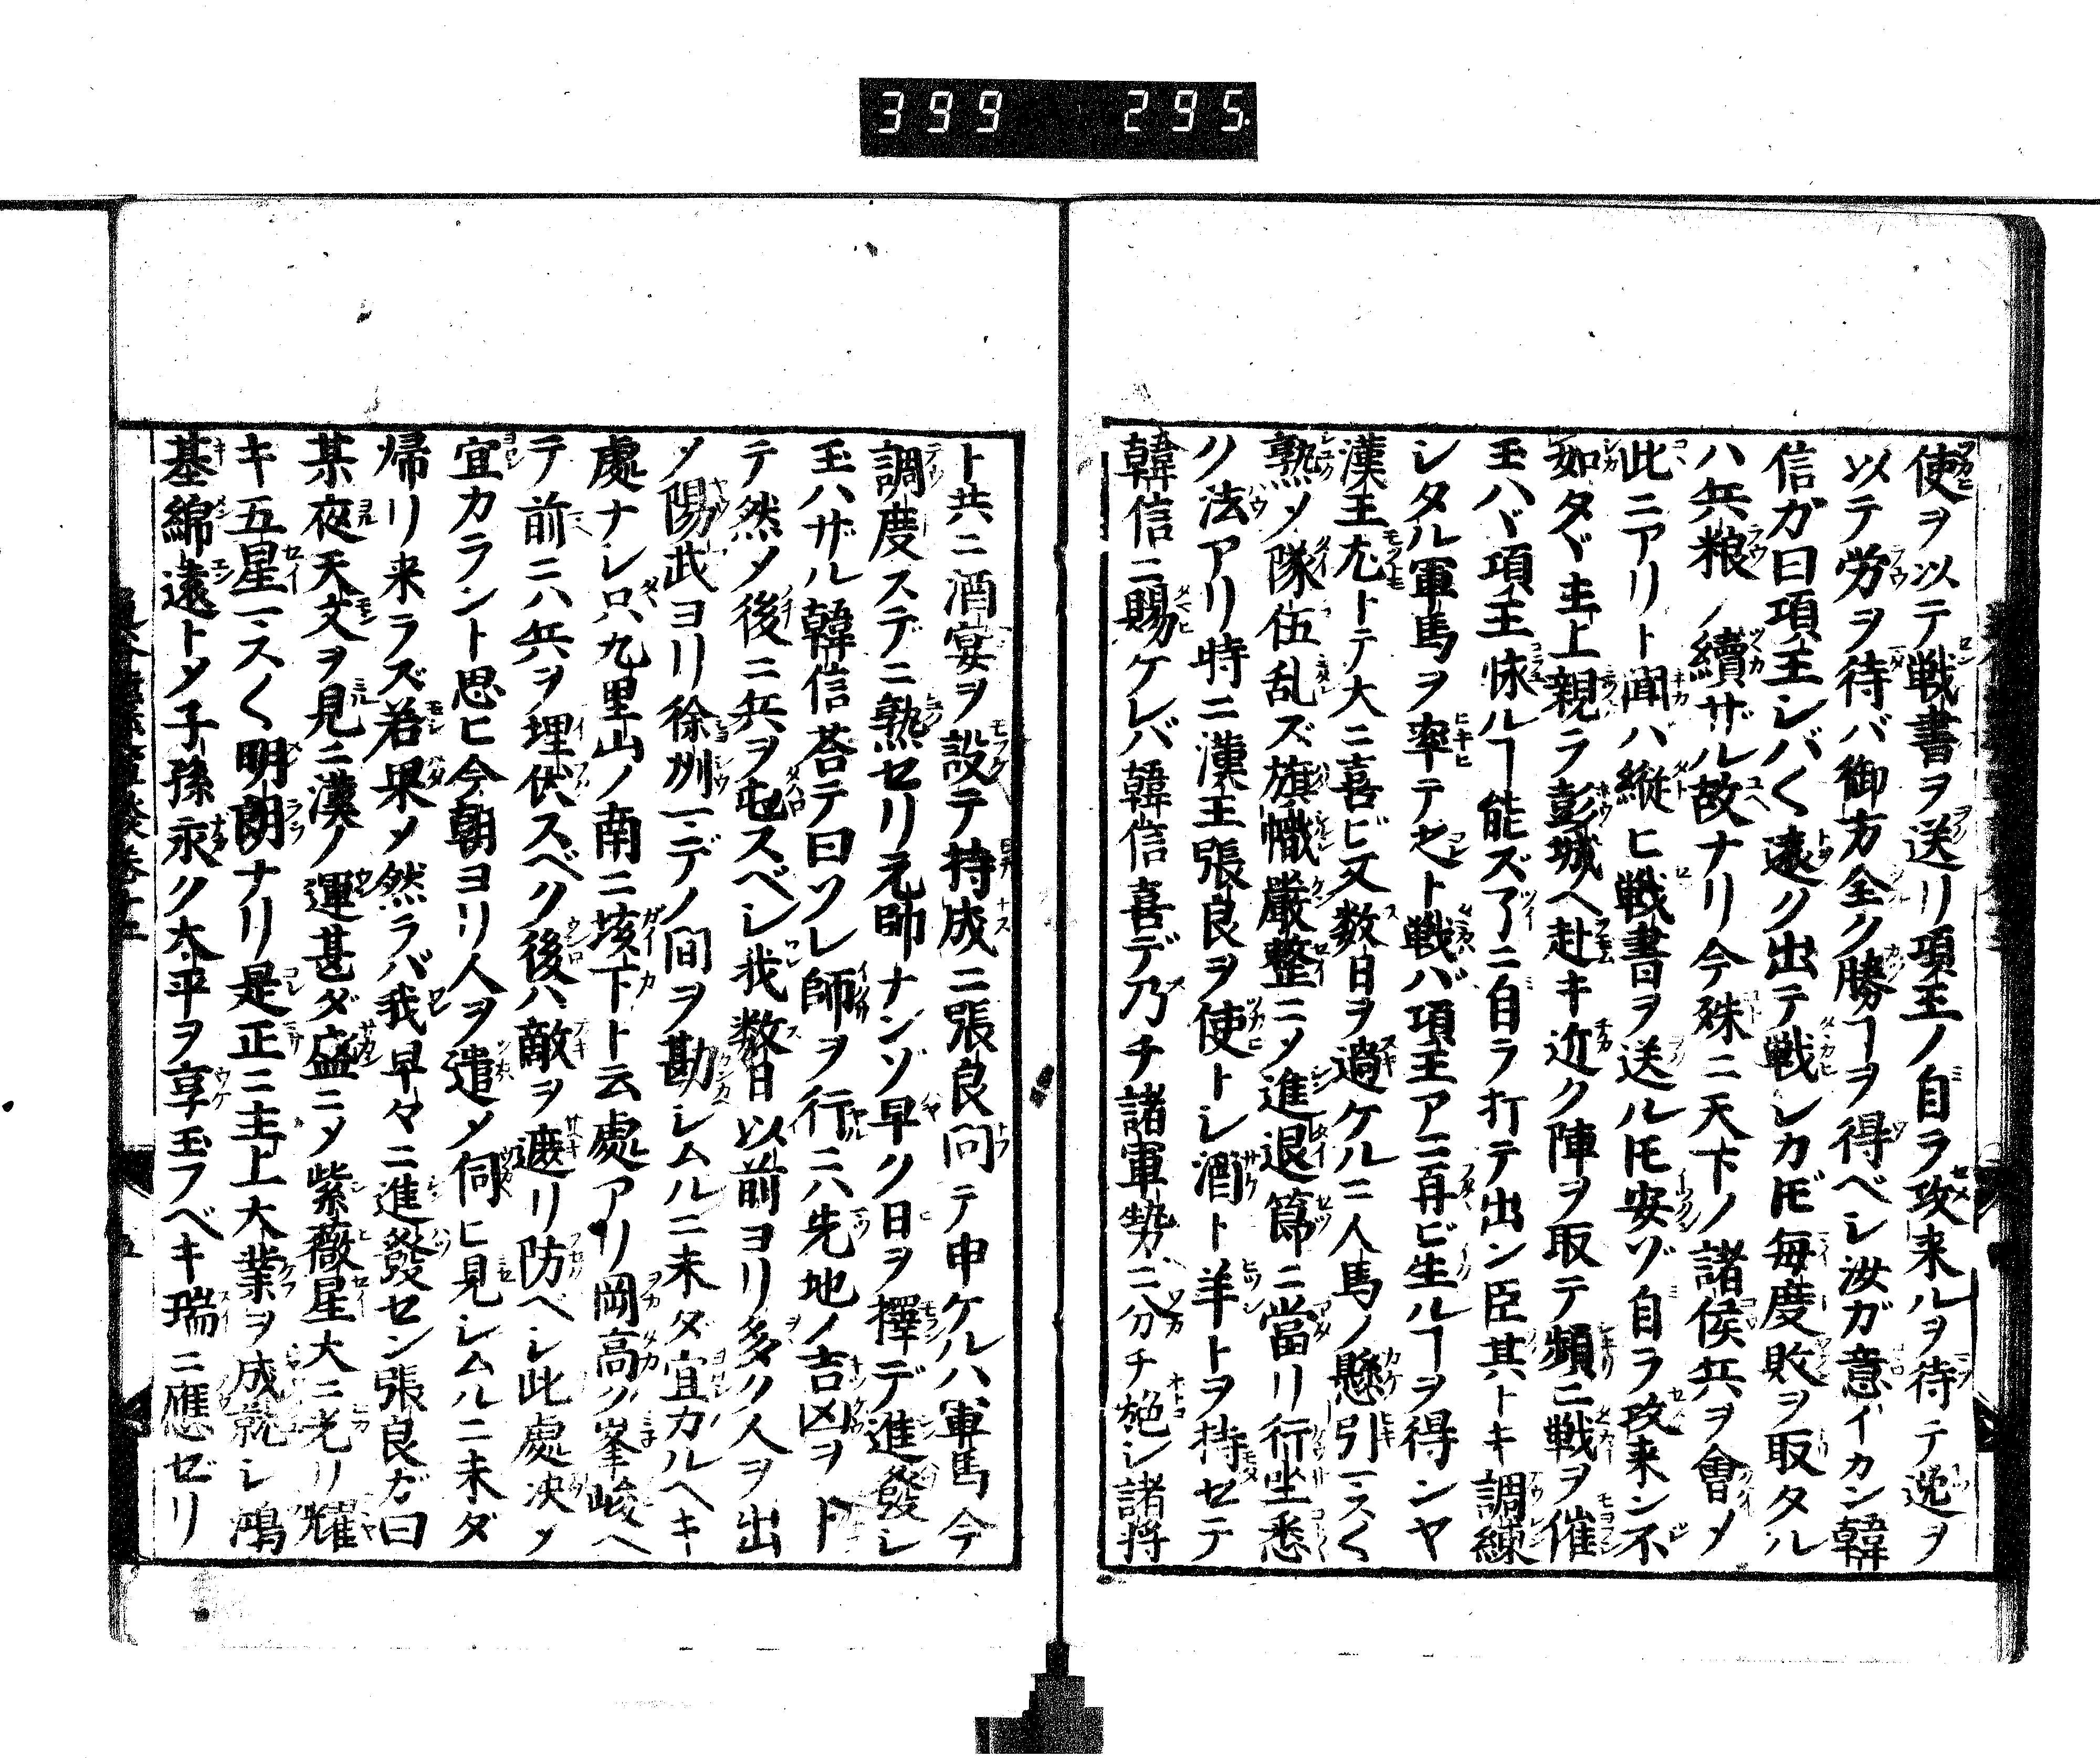 399 295.
使ヲ以テ戦書ヲ送リ項王ノ自ラ攻来ルヲ待テ逸ヲ
以テ労ヲ待バ御方全ク勝ヿヲ得ベシ汝ガ意イカン韓
信ガ曰項王シバ〱遠ク出テ戦シカ𪜈毎度敗ヲ取タル
ハ兵粮ノ續ザル故ナリ今殊ニ天下ノ諸侯兵ヲ會メ
此ニアリト聞ハ縦ヒ戦書ヲ送ル𪜈安ゾ自ラ攻来ン不
如タヾ主上親ラ彭城ヘ赴キ近ク陣ヲ取テ頻ニ戦ヲ催
玉ハヾ項王怺ルヿ能ズ了ニ自ラ打テ出ン臣其トキ調練
シタル軍馬ヲ率テ之ト戦バ項王アニ再ビ生ルヿヲ得ンヤ
漢王尤トテ大ニ喜ビ又数日ヲ過ケルニ人馬ノ懸引マスく
熟メ隊伍乱ズ旗幟厳整ニメ進退節ニ當リ行坐悉
ク法アリ時ニ漢王張良ヲ使トシ酒ト羊トヲ持セテ
韓信ニ賜ケレバ韓信喜デ乃チ諸軍勢ニ分チ施シ諸将
ト共ニ酒宴ヲ設テ持成ニ張良問テ申ケルハ軍馬今
調度スデニ熟セリ元帥ナンゾ早ク日ヲ擇デ進發シ
玉ハザル韓信荅テ曰ソレ師ヲ行ニハ先地ノ吉凶ヲト
テ然メ後ニ兵ヲ屯スベシ我数日以前ヨリ多ク人ヲ出
メ陽武ヨリ徐州マデノ間ヲ勘シムルニ未タ宜カルヘキ
處ナシ只九里山ノ南ニ垓下ト云處アリ岡高ク峯峻ヘ
テ前ニハ兵ヲ埋伏スベク後ハ敵ヲ遮リ防ベシ此處决メ
宜カラント思ヒ今朝ヨリ人ヲ遣メ伺ヒ見シムルニ未ダ
帰リ来ラズ若果メ然ラバ我早々ニ進發セン張良ガ曰
某夜天文ヲ見ニ漢ノ運甚ダ盛ニメ紫薇星大ニ光リ耀
キ五星マスく明朗ナリ是正ニ主上大業ヲ成就シ鴻
基綿遠トメ子孫永ク太平ヲ享玉フベキ瑞ニ應ゼリ